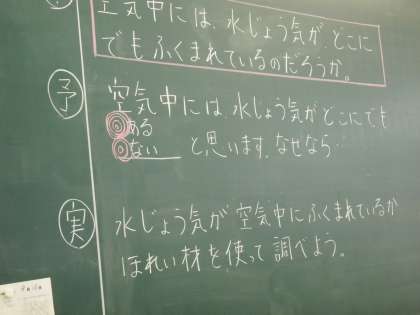 空気中には、水じょう気が、どこに
でもふくまれているのだろうか。
予
空気中には、水じょう気がどこにでも
ある
ない と思います。なぜなら…
実
水じょう気が空気中にふくまれているか
ほれい材を使って調べよう。